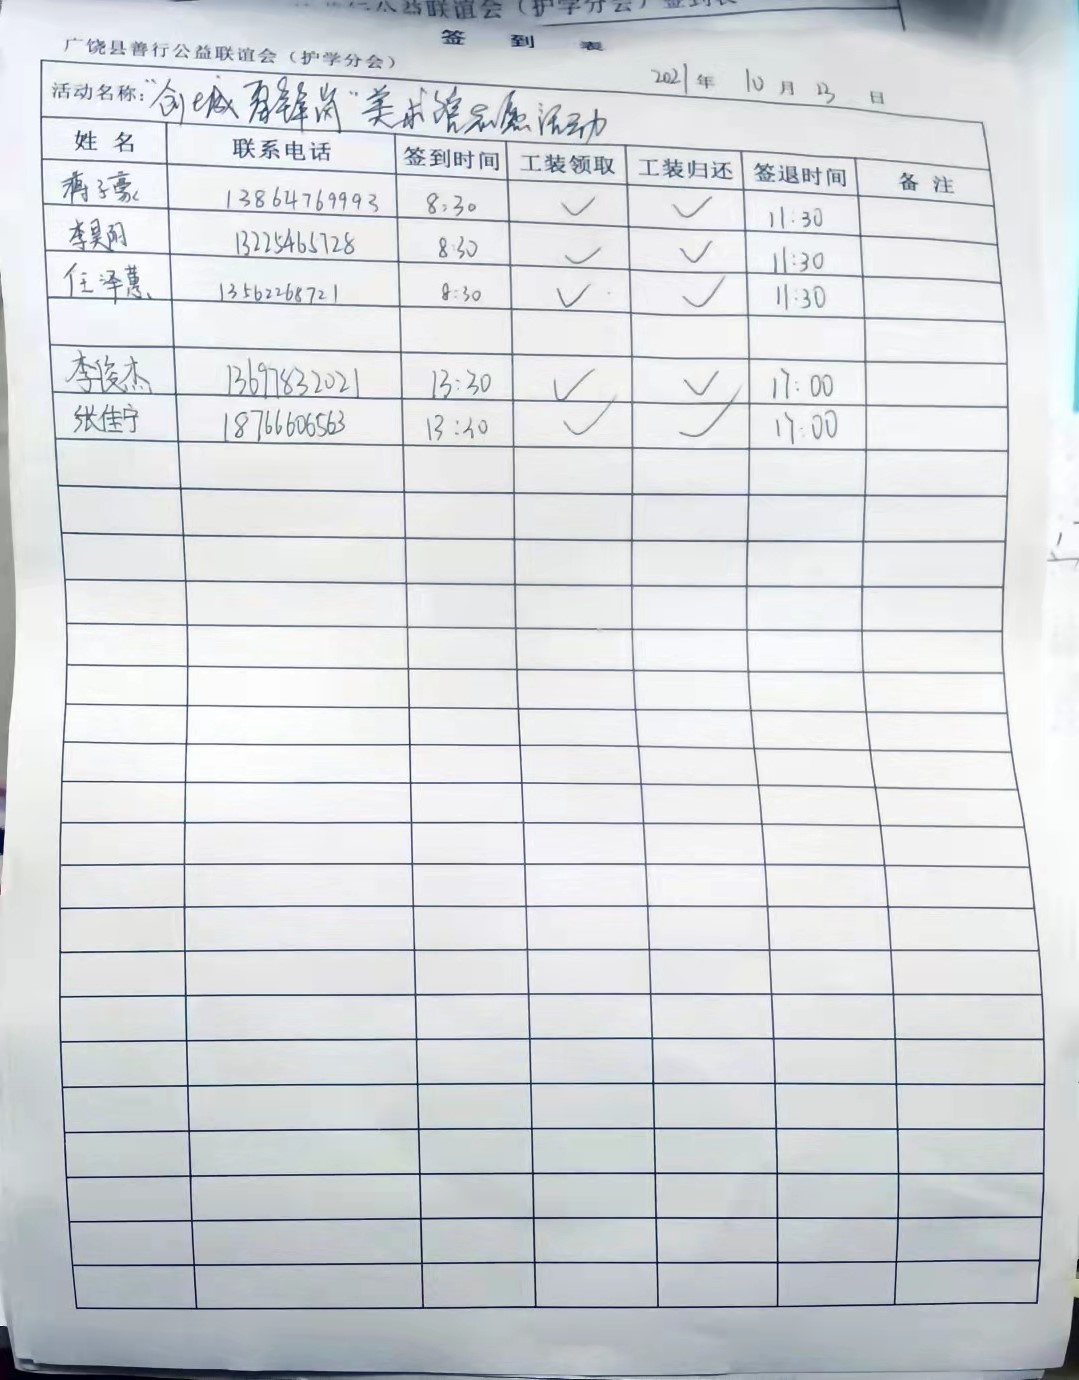 签到表
广饶县善行公益联谊会（护学分会）
2021年 10月 13日
活动名称："创城 先锋岗"美术馆志愿活动
姓名 联系电话 签到时间 工装领取 工装归还 签退时间 备注
蒋子豪 13864769993 8:30 ✓ ✓ 11:30
李昊雨 13225465728 8:30 ✓ ✓ 11:30
任泽蕙 13562268721 8:30 ✓ ✓ 11:30
李俊杰 13697832021 13:30 ✓ ✓ 17:00
张佳宁 18766606563 13:30 ✓ ✓ 17:00